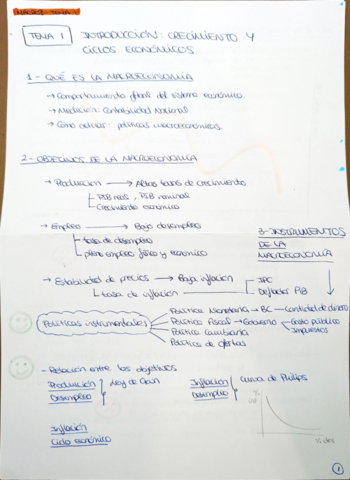 MACRO: TEMA 1
TEMA 1 INTRODUCCIÓN: CRECIMIENTO Y
CICLOS ECONÓMICOS
1- QUÉ ES LA MACROECONOMÍA
→ Comportamiento global del sistema económico
→ Medición: Contabilidad Nacional
→ Cómo actuar: políticas macroeconómicas.
2- OBJETIVOS DE LA MACROECONOMÍA
→ Producción → Altas tasas de crecimiento
PIB real, PIB nominal
Crecimiento económico
→ Empleo → Bajo desempleo
tasa de desempleo
pleno empleo físico y económico
3- INSTRUMENTOS
DE LA
MACROECONOMÍA
→ Estabilidad de precios → Baja inflación
IPC
Deflactor PIB
tasa de inflación
Políticas instrumentales
Política Monetaria → BC → Cantidad de dinero
Política Fiscal → Gobierno
Gasto público
Impuestos
Política Cambiaria
Política de ofertas
- Relación entre los objetivos
Producción
Desempleo
Ley de Okun
Inflación
Desempleo
Curva de Philips
Inflación
Ciclo económico
% des
1